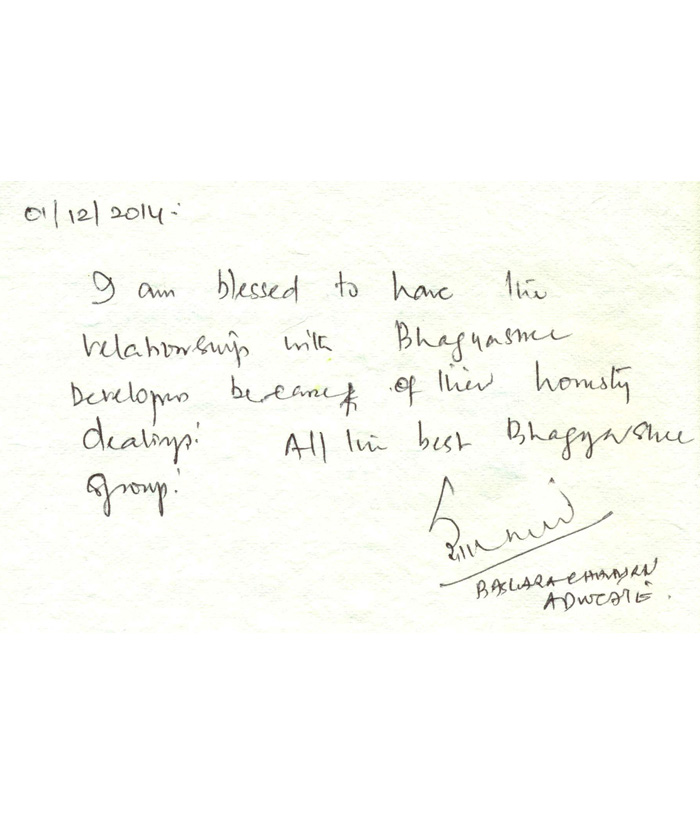 01/12/2014:
I am blessed to have the
relationship with Bhagyashree
Developers because of their honesty
dealings! All the best Bhagyashree
group!
ADVOCATE